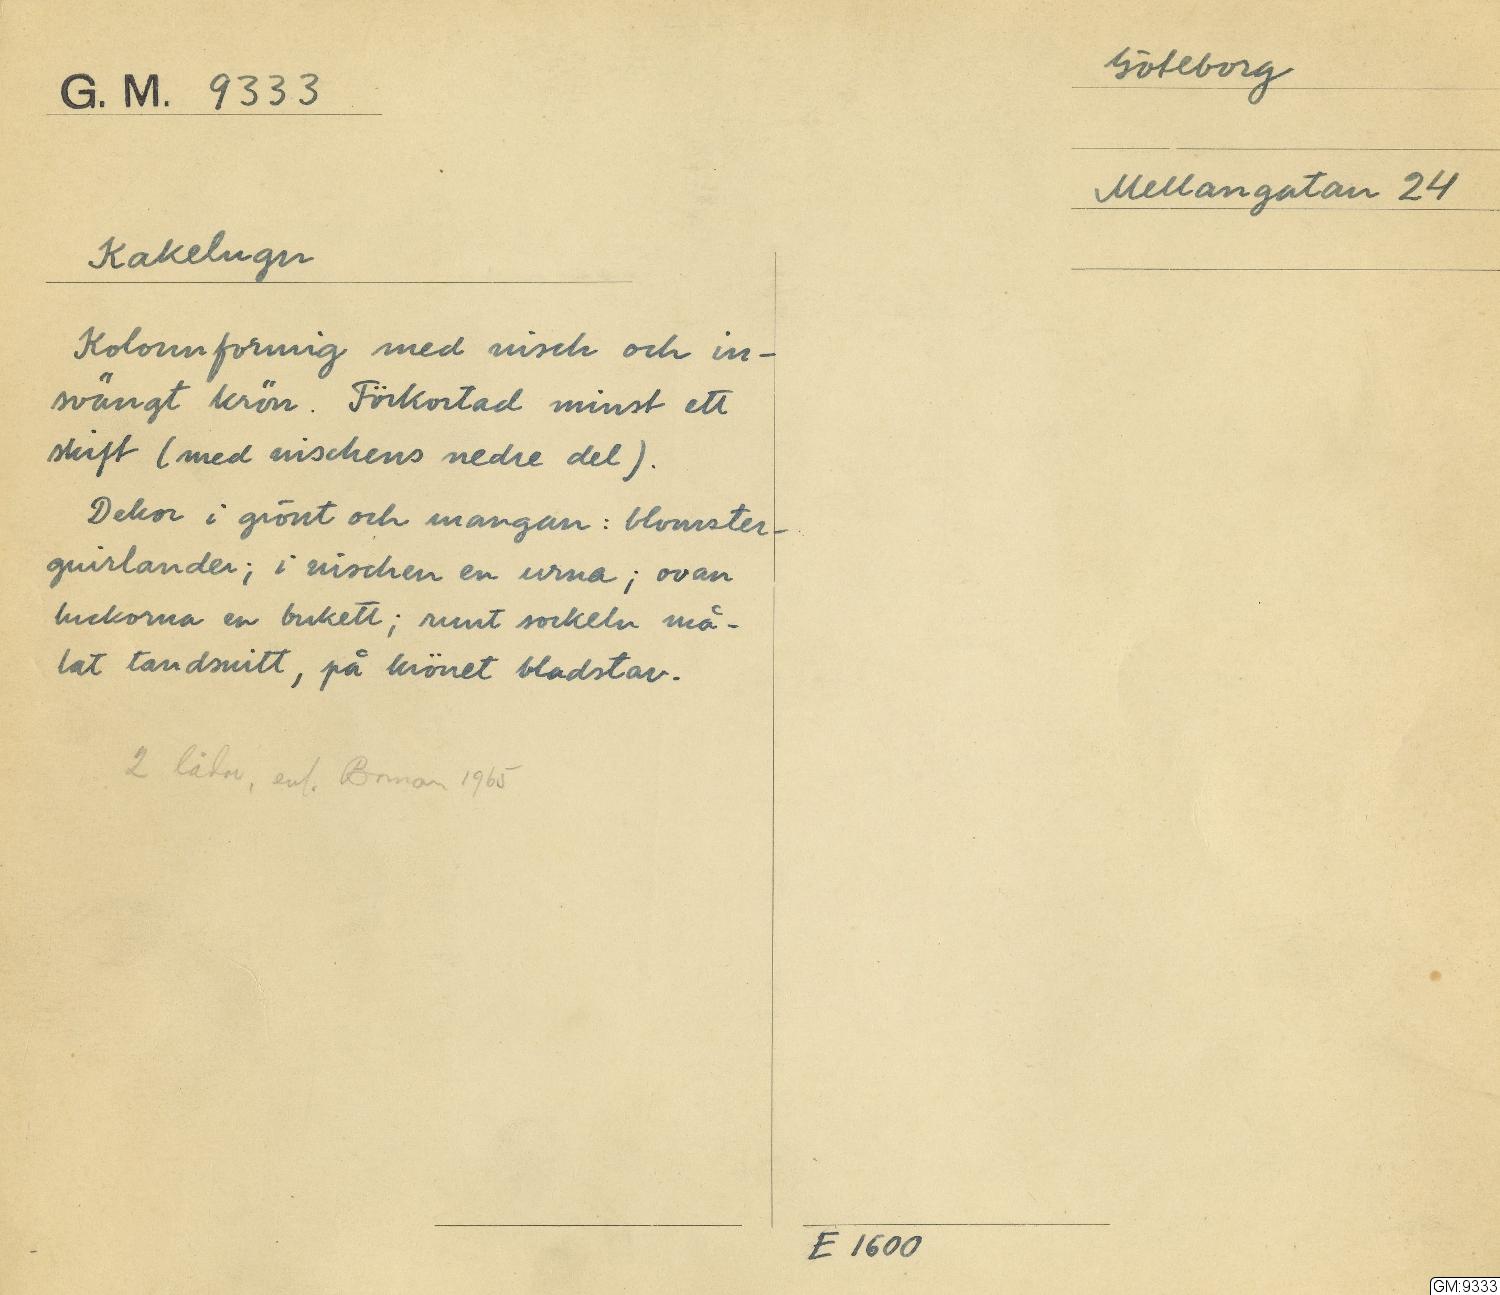 G. M. 9333
Göteborg
Mellangatan 24
Kakelugn
Kolonnformig med nisch och in-
svängt krön. Förkortad minst ett
skift (med nischens nedre del).
Dekor i grönt och mangan: blomster-
guirlander; i nischen en urna; ovan
luckorna en bukett; runt sockeln må-
lat tandsnitt, på krönet bladstav.
2 lådor, enl. Boman 1965
E 1600
GM:9333